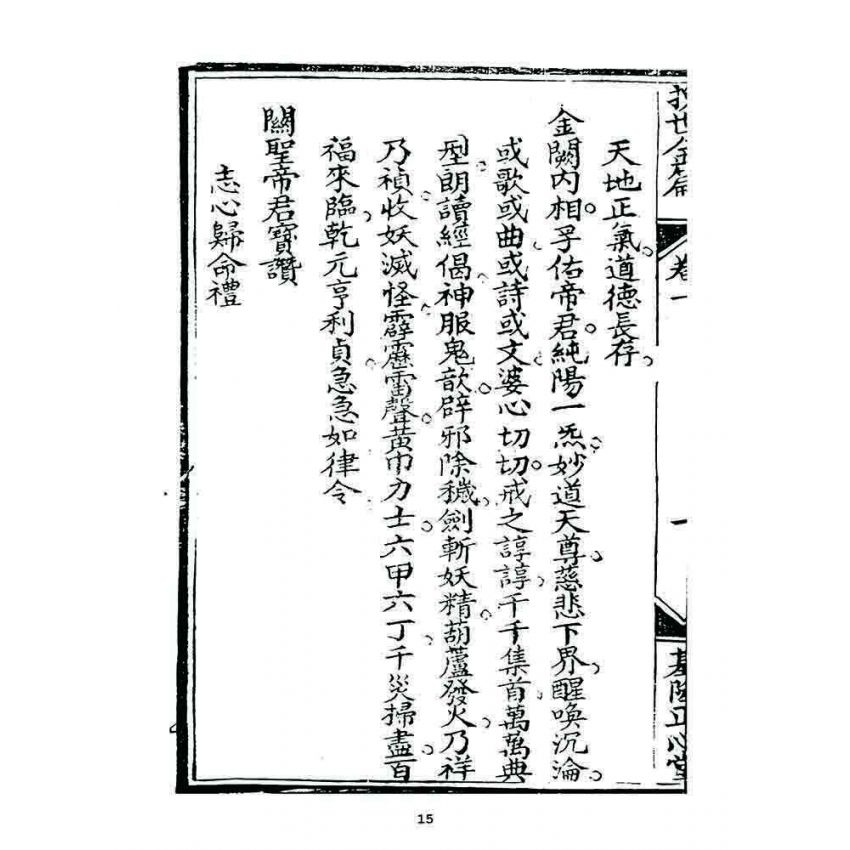 救世金篇 卷一 一 基隆正心堂
天地正氣。道德長存。
金闕內相。孚佑帝君。純陽一炁。妙道天尊。慈悲下界。醒喚沉淪。
或歌或曲。或詩或文。婆心切切。戒之諄諄。千千集首。萬萬典
型。朗讀經偈。神服鬼歆。辟邪除穢。劍斬妖精。葫蘆發火。乃祥
乃禎。收妖滅怪。霹靂雷聲。黃巾力士。六甲六丁。千災掃盡。百
福來臨。乾元亨利貞。急急如律令
關聖帝君寶讚
志心歸命禮
15